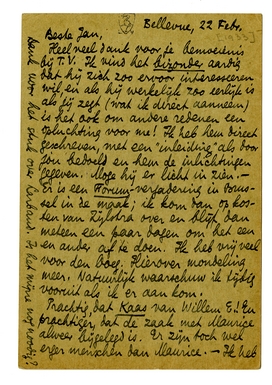 Bellevue, 22 Febr.
[1933]
Beste Jan,
Heel veel dank voor je bemoeienis
bij T.V. Ik vind het bijzonder aardig
dat hij zich zoo ervoor interesseeren
wil, en als hij werkelijk zoo eerlijk is
als jij zegt (wat ik direct aanneem)
is het ook om andere redenen een
opluchting voor me! Ik heb hem direct
geschreven, met een "inleiding" als door
jou bedoeld en hem de inlichtingen
gegeven. Moge hij er licht in zien. —
Er is een Forum-vergadering in Brus-
sel in de maak; ik kom dan op kos-
ten van Zijlstra over en blijf dan
meteen een paar dagen om het een
en ander af te doen. Ik heb vrij veel
voor den boeg. Hierover mondeling
meer. Natuurlijk waarschuw ik tijdig
vooruit als ik er aan kom.
Prachtig, dat Kaas van Willem E.! En
prachtiger, dat de zaak met Maurice
alweer bijgelegd is. Er zijn toch wel
erger menschen dan Maurice. — Ik heb
Dank voor het stuk over Kerdand. Is het nog noodig?